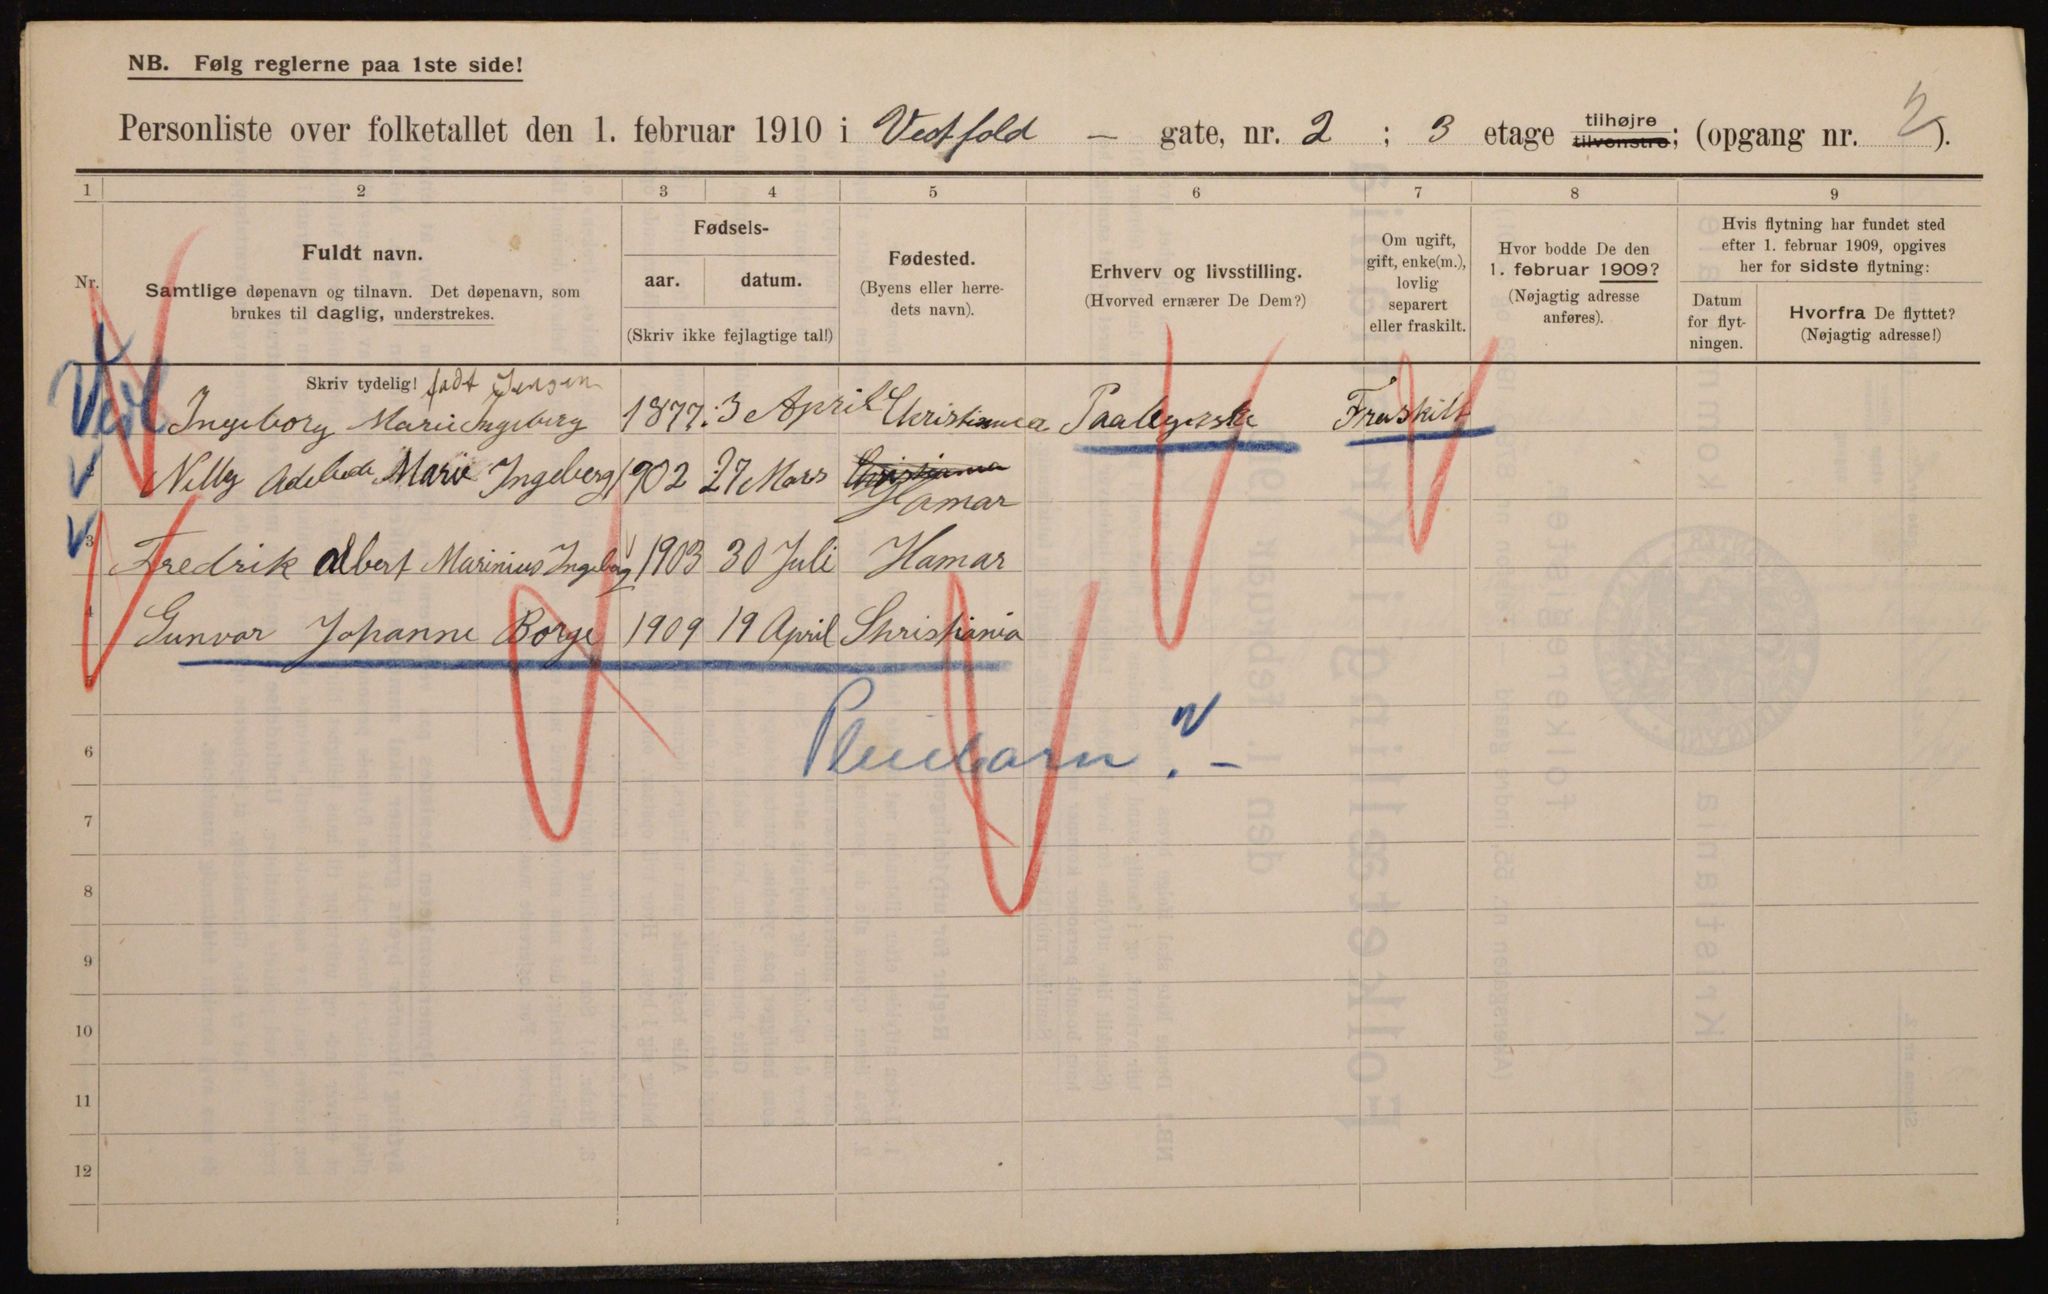 NB. Følg reglerne paa 1ste side!
Personliste over folketallet den 1. februar 1910 i Vestfold – gate, nr. 2 ; 3 etage tilhøjre tilvenstre; (opgang nr. 2).
1 2 3 4 5 6 7 8 9
Nr.
Fuldt navn.
Samtlige døpenavn og tilnavn. Det døpenavn, som
brukes til daglig, understrekes.
Fødsels-
aar. datum.
(Skriv ikke fejlagtige tal!)
Fødested.
(Byens eller herre-
dets navn).
Erhverv og livsstilling.
(Hvorved ernærer De Dem?)
Om ugift,
gift, enke(m.),
lovlig
separert
eller fraskilt.
Hvor bodde De den
1. februar 1909?
(Nøjagtig adresse
anføres).
Hvis flytning har fundet sted
efter 1. februar 1909, opgives
her for sidste flytning:
Datum
for flyt-
ningen.
Hvorfra De flyttet?
(Nøjagtig adresse!)
Skriv tydelig! født Jensen
Ingeborg Marie Ingeberg 1877. 3 April Christiania Fraskilt
Nelly Marie Ingeberg 1902 27 Mars Christiania
Hamar
3 Fredrik Albert Marinius Ingeberg 1903 30 Juli Hamar
4 Gunvor Johanne Borge 1909 19 April Christiania
5
6 Pleiebarn?
7
8
9
10
11
12